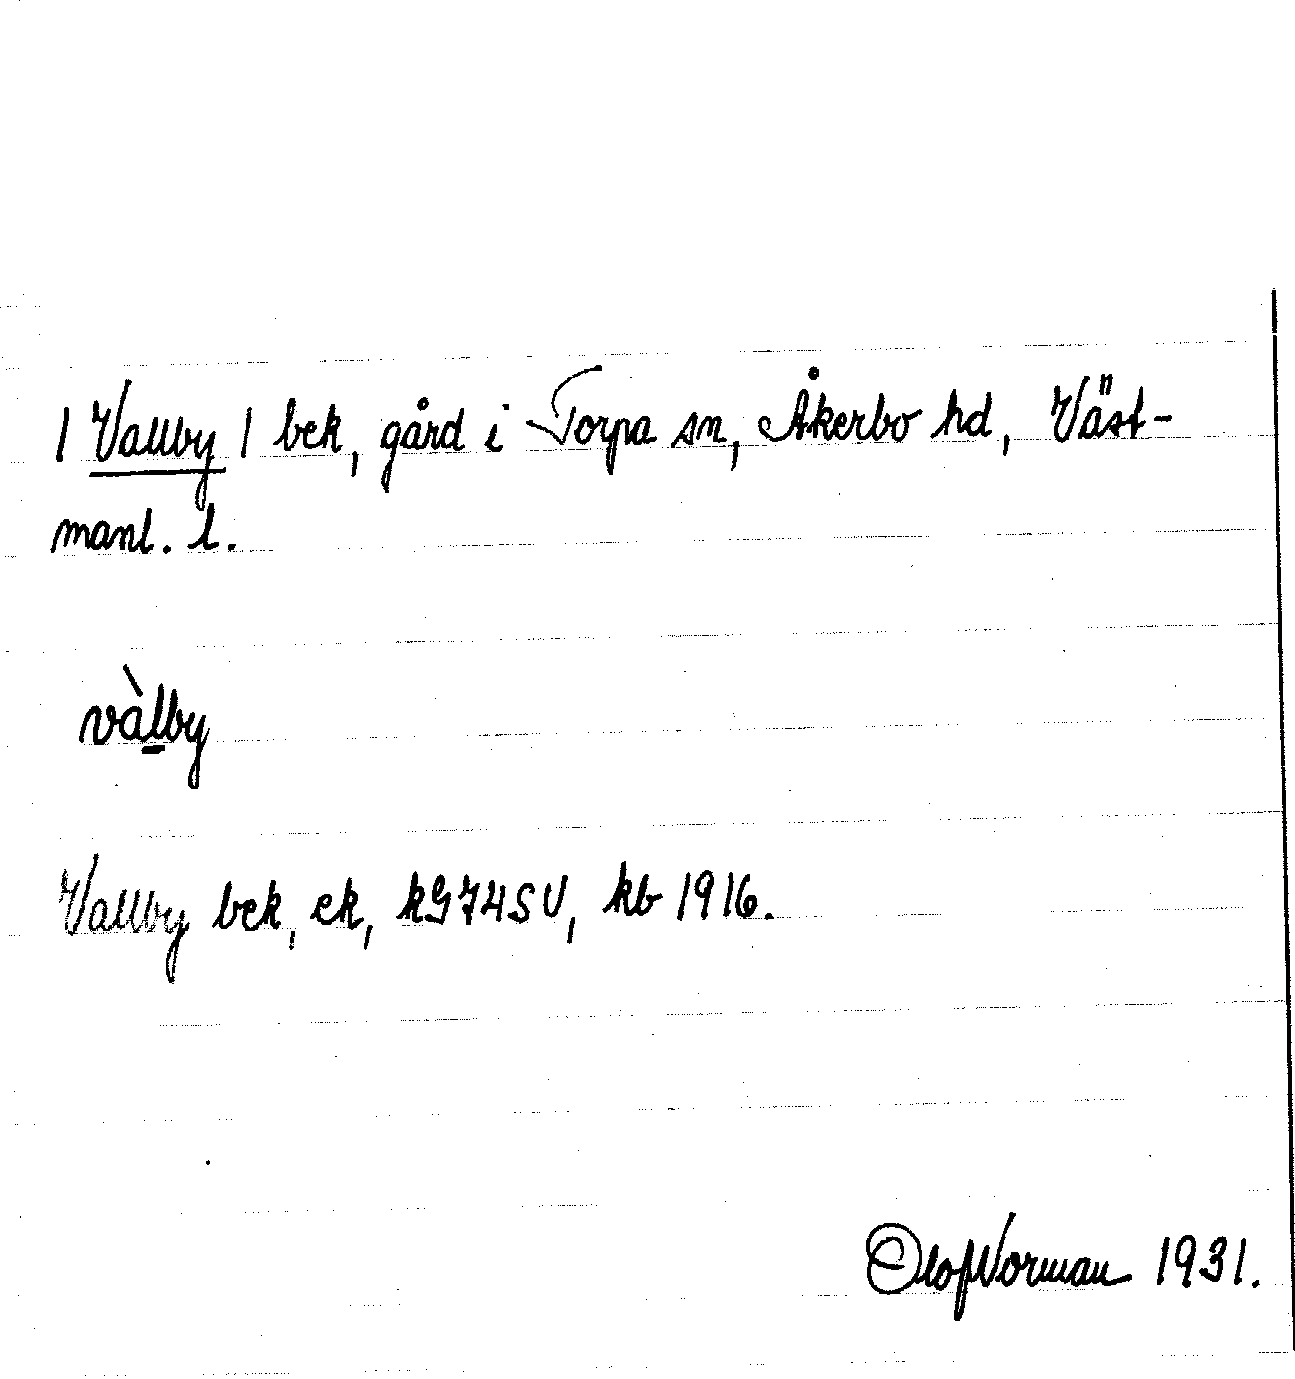 / Vallby / bek, gård i Torpa sn, Åkerbo hd, Väst-
manl. l.
vàl̲by
Vallby bek, ek, kG74SV, kb 1916.
Olof Norman 1931.